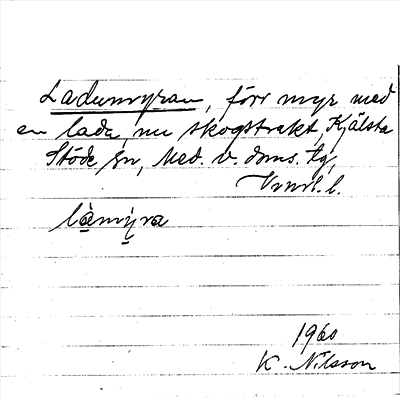 Ladumyran, förr myr med
en lada, nu skogstrakt, Kjälsta
Stöde sn, Med. v. doms. tg,
Vnrl. l.
làmỳra
1960
K. Nilsson